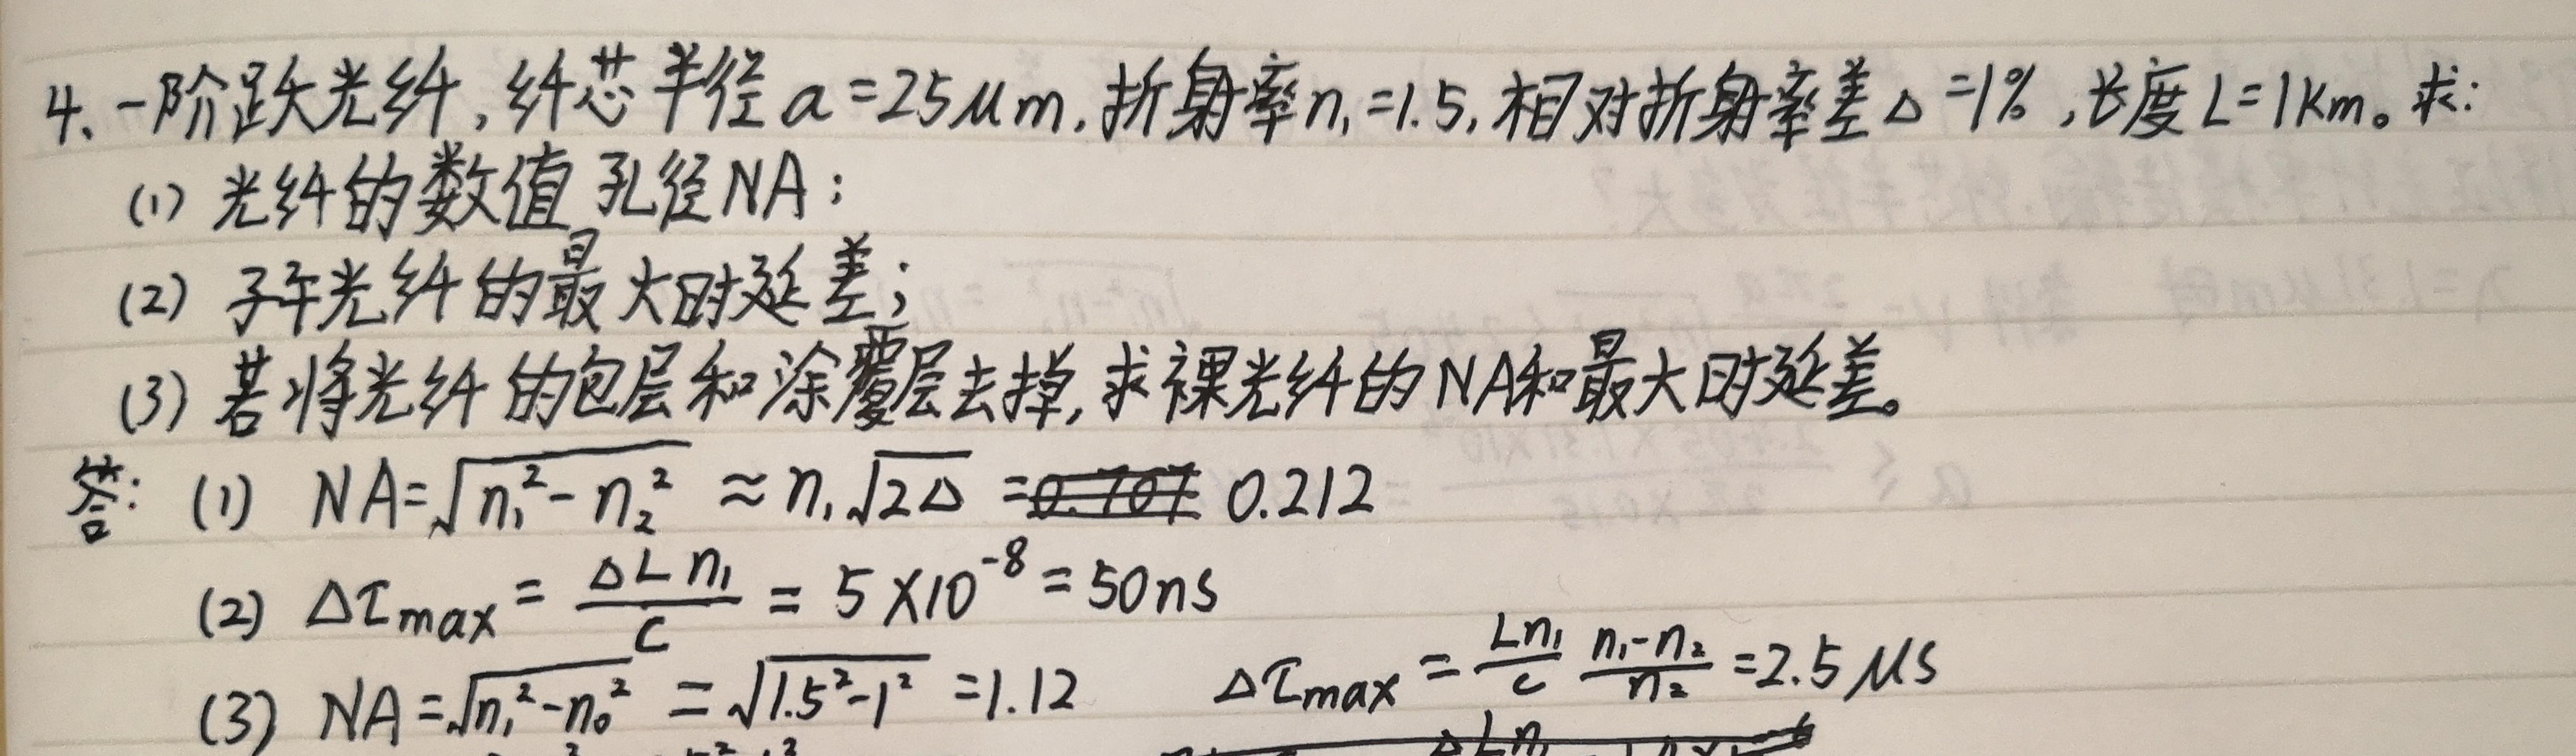 4、一阶跃光纤,纤芯半径a=25μm,折射率n₁=1.5,相对折射率差Δ=1%,长度L=1km。求:
(1) 光纤的数值孔径NA;
(2) 子午光纤的最大时延差;
(3) 若将光纤的包层和涂覆层去掉,求裸光纤的NA和最大时延差。
答: (1) NA=√(n₁²-n₂²) ≈ n₁√(2Δ) = 0.212
(2) Δτmax = ΔLn₁/c = 5×10⁻⁸ = 50ns
(3) NA=√(n₁²-n₀²) = √(1.5²-1²) = 1.12 Δτmax = Ln₁/c (n₁-n₂)/n₂ = 2.5μs